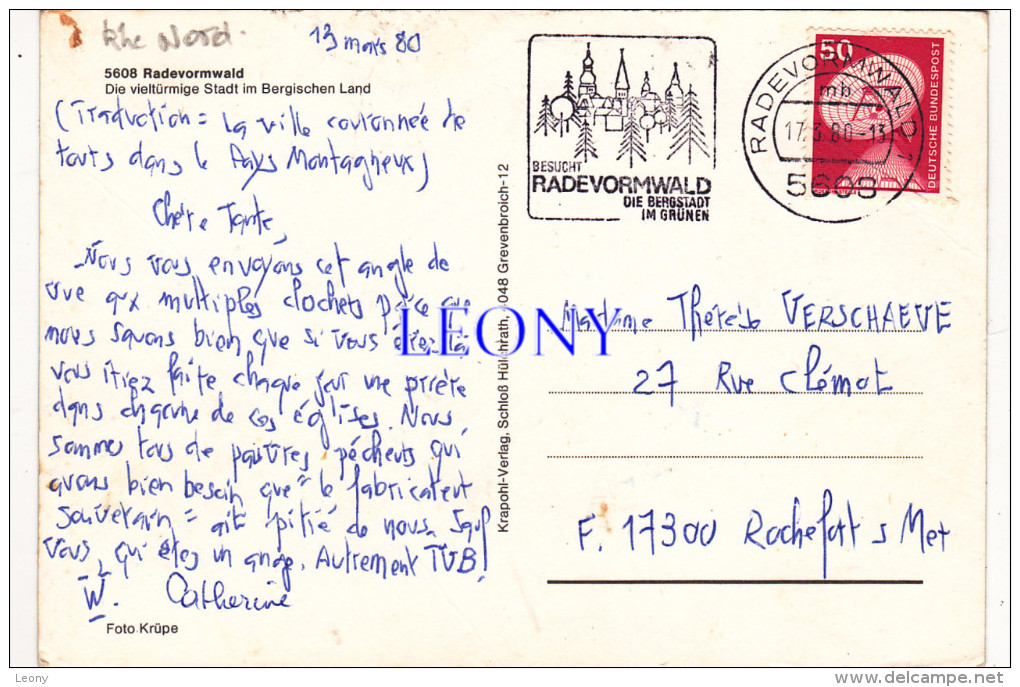 Rhe Nord.
13 mars 80
5608 Radevormwald
Die vieltürmige Stadt im Bergischen Land
(Traduction = La ville couronnée de
tours dans le Pays Montagneux)
Chère Tante,
Nous vous envoyons cet angle de
vue aux multiples clochers parce que
nous savons bien que si vous étiez là
vous iriez faire chaque jour une prière
dans chacune de ces églises. Nous
sommes tous de pauvres pécheurs qui
avons bien besoin que "le fabricateur
souverain" ait pitié de nous. Sauf
vous, qui êtes un ange. Autrement TVB!
W. Catherine
Foto Krüpe
Krapohl-Verlag, Schloß Hülchrath, 4048 Grevenbroich-12
BESUCHT
RADEVORMWALD
DIE BERGSTADT
IM GRÜNEN
RADEVORMWALD 1
mb
17.3.80-13
5608
50
DEUTSCHE BUNDESPOST
LEONY
Madame Thérèse VERSCHAEVE
27 Rue Clémot
F. 17300 Rochefort s Mer
Leony
www.delcampe.net